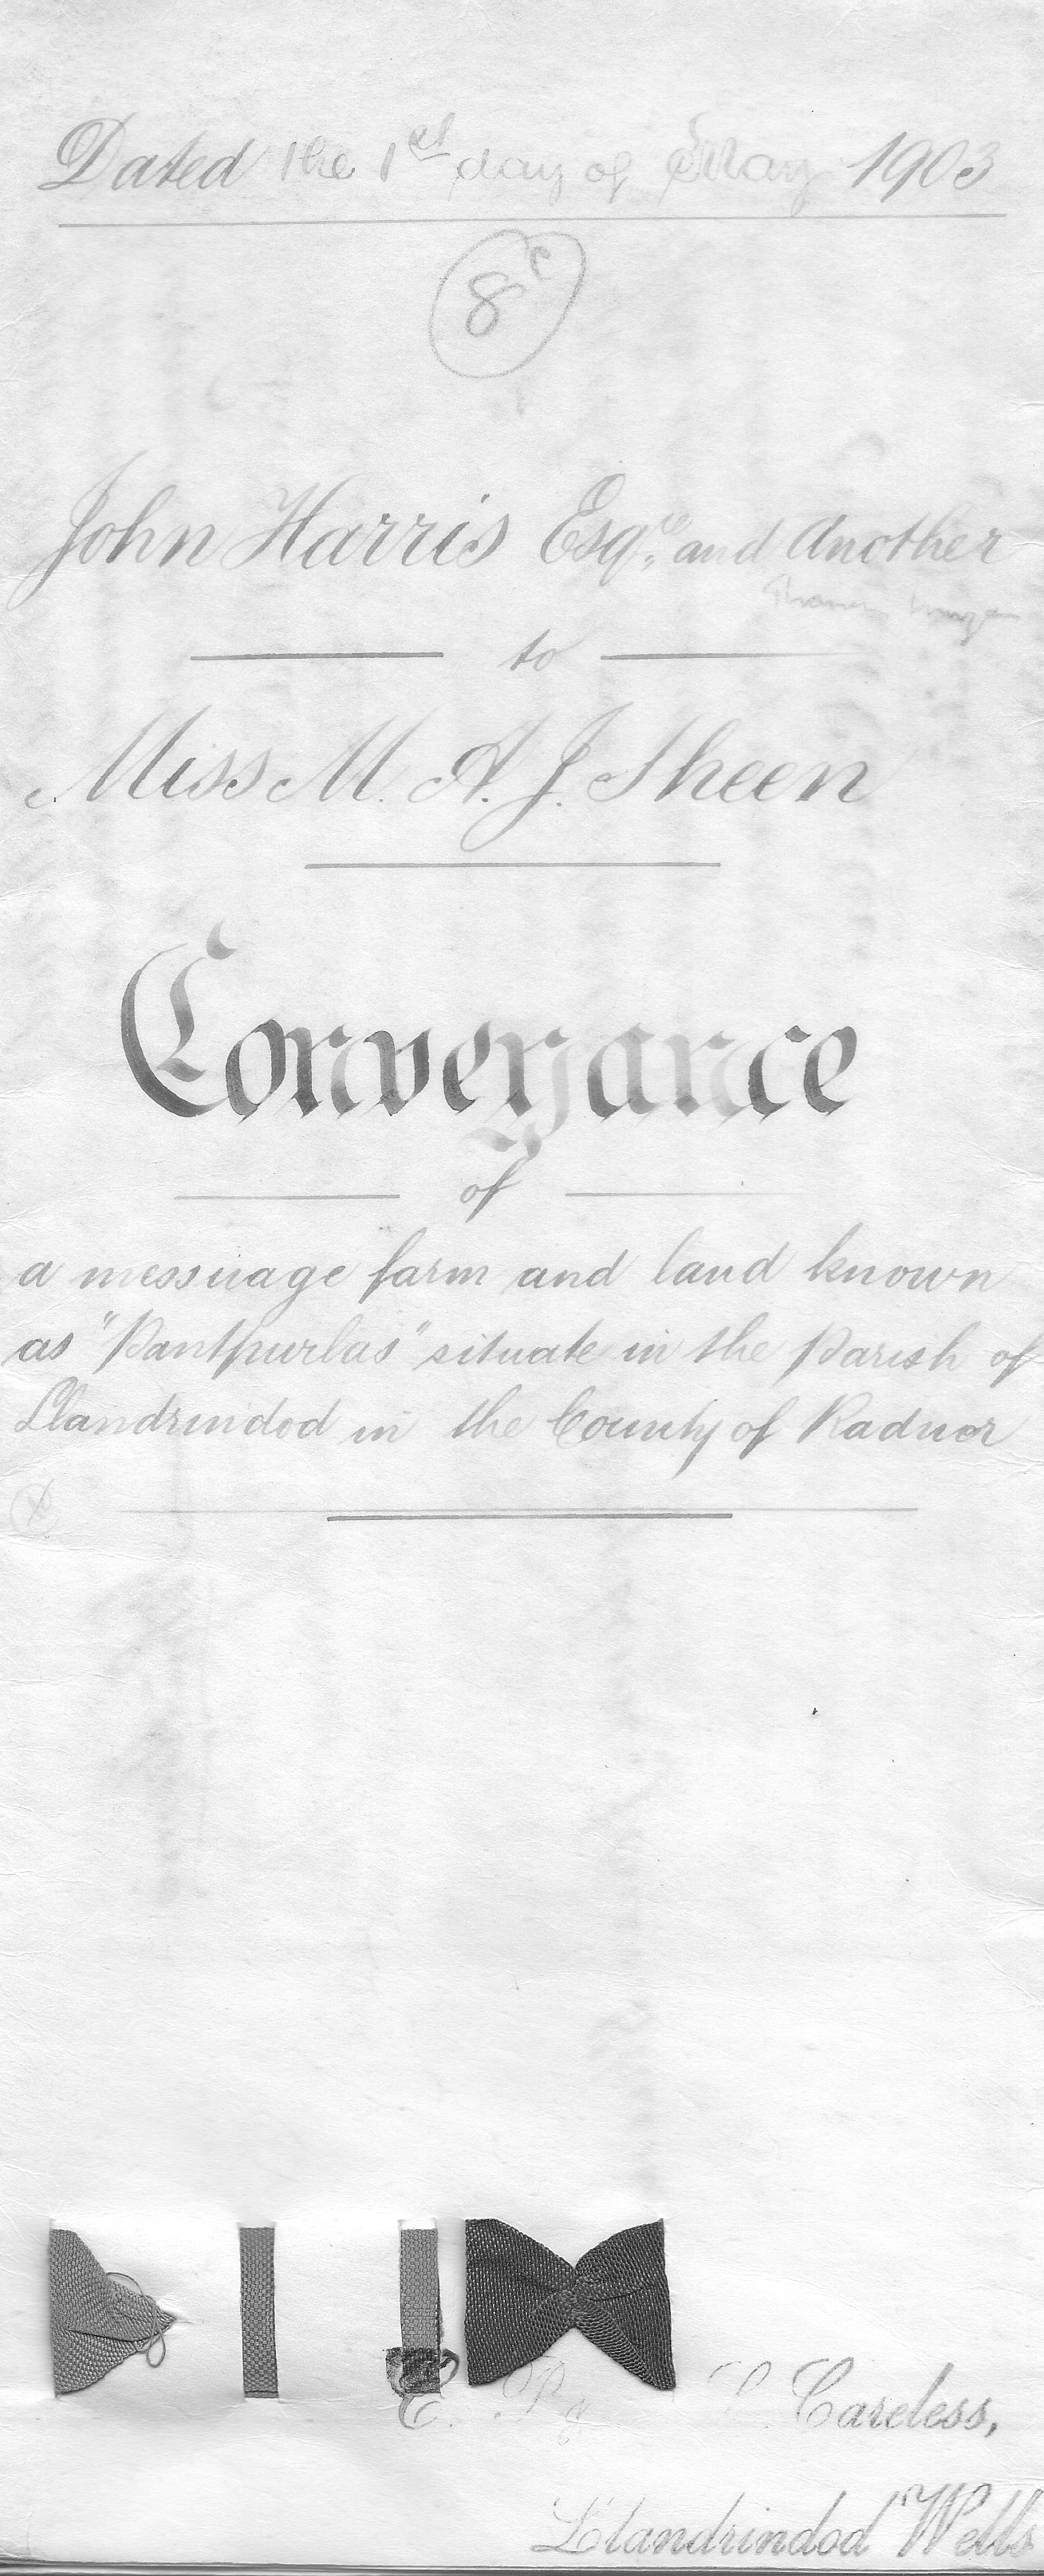 Dated the 1st day of May 1903
8c
John Harris Esqre. and Another
to
Miss M. A. J. Sheen
Conveyance
of
a messuage farm and land known
as "Pantpurlas" situate in the Parish of
Llandrindod in the County of Radnor
X
Careless,
Llandrindod Wells